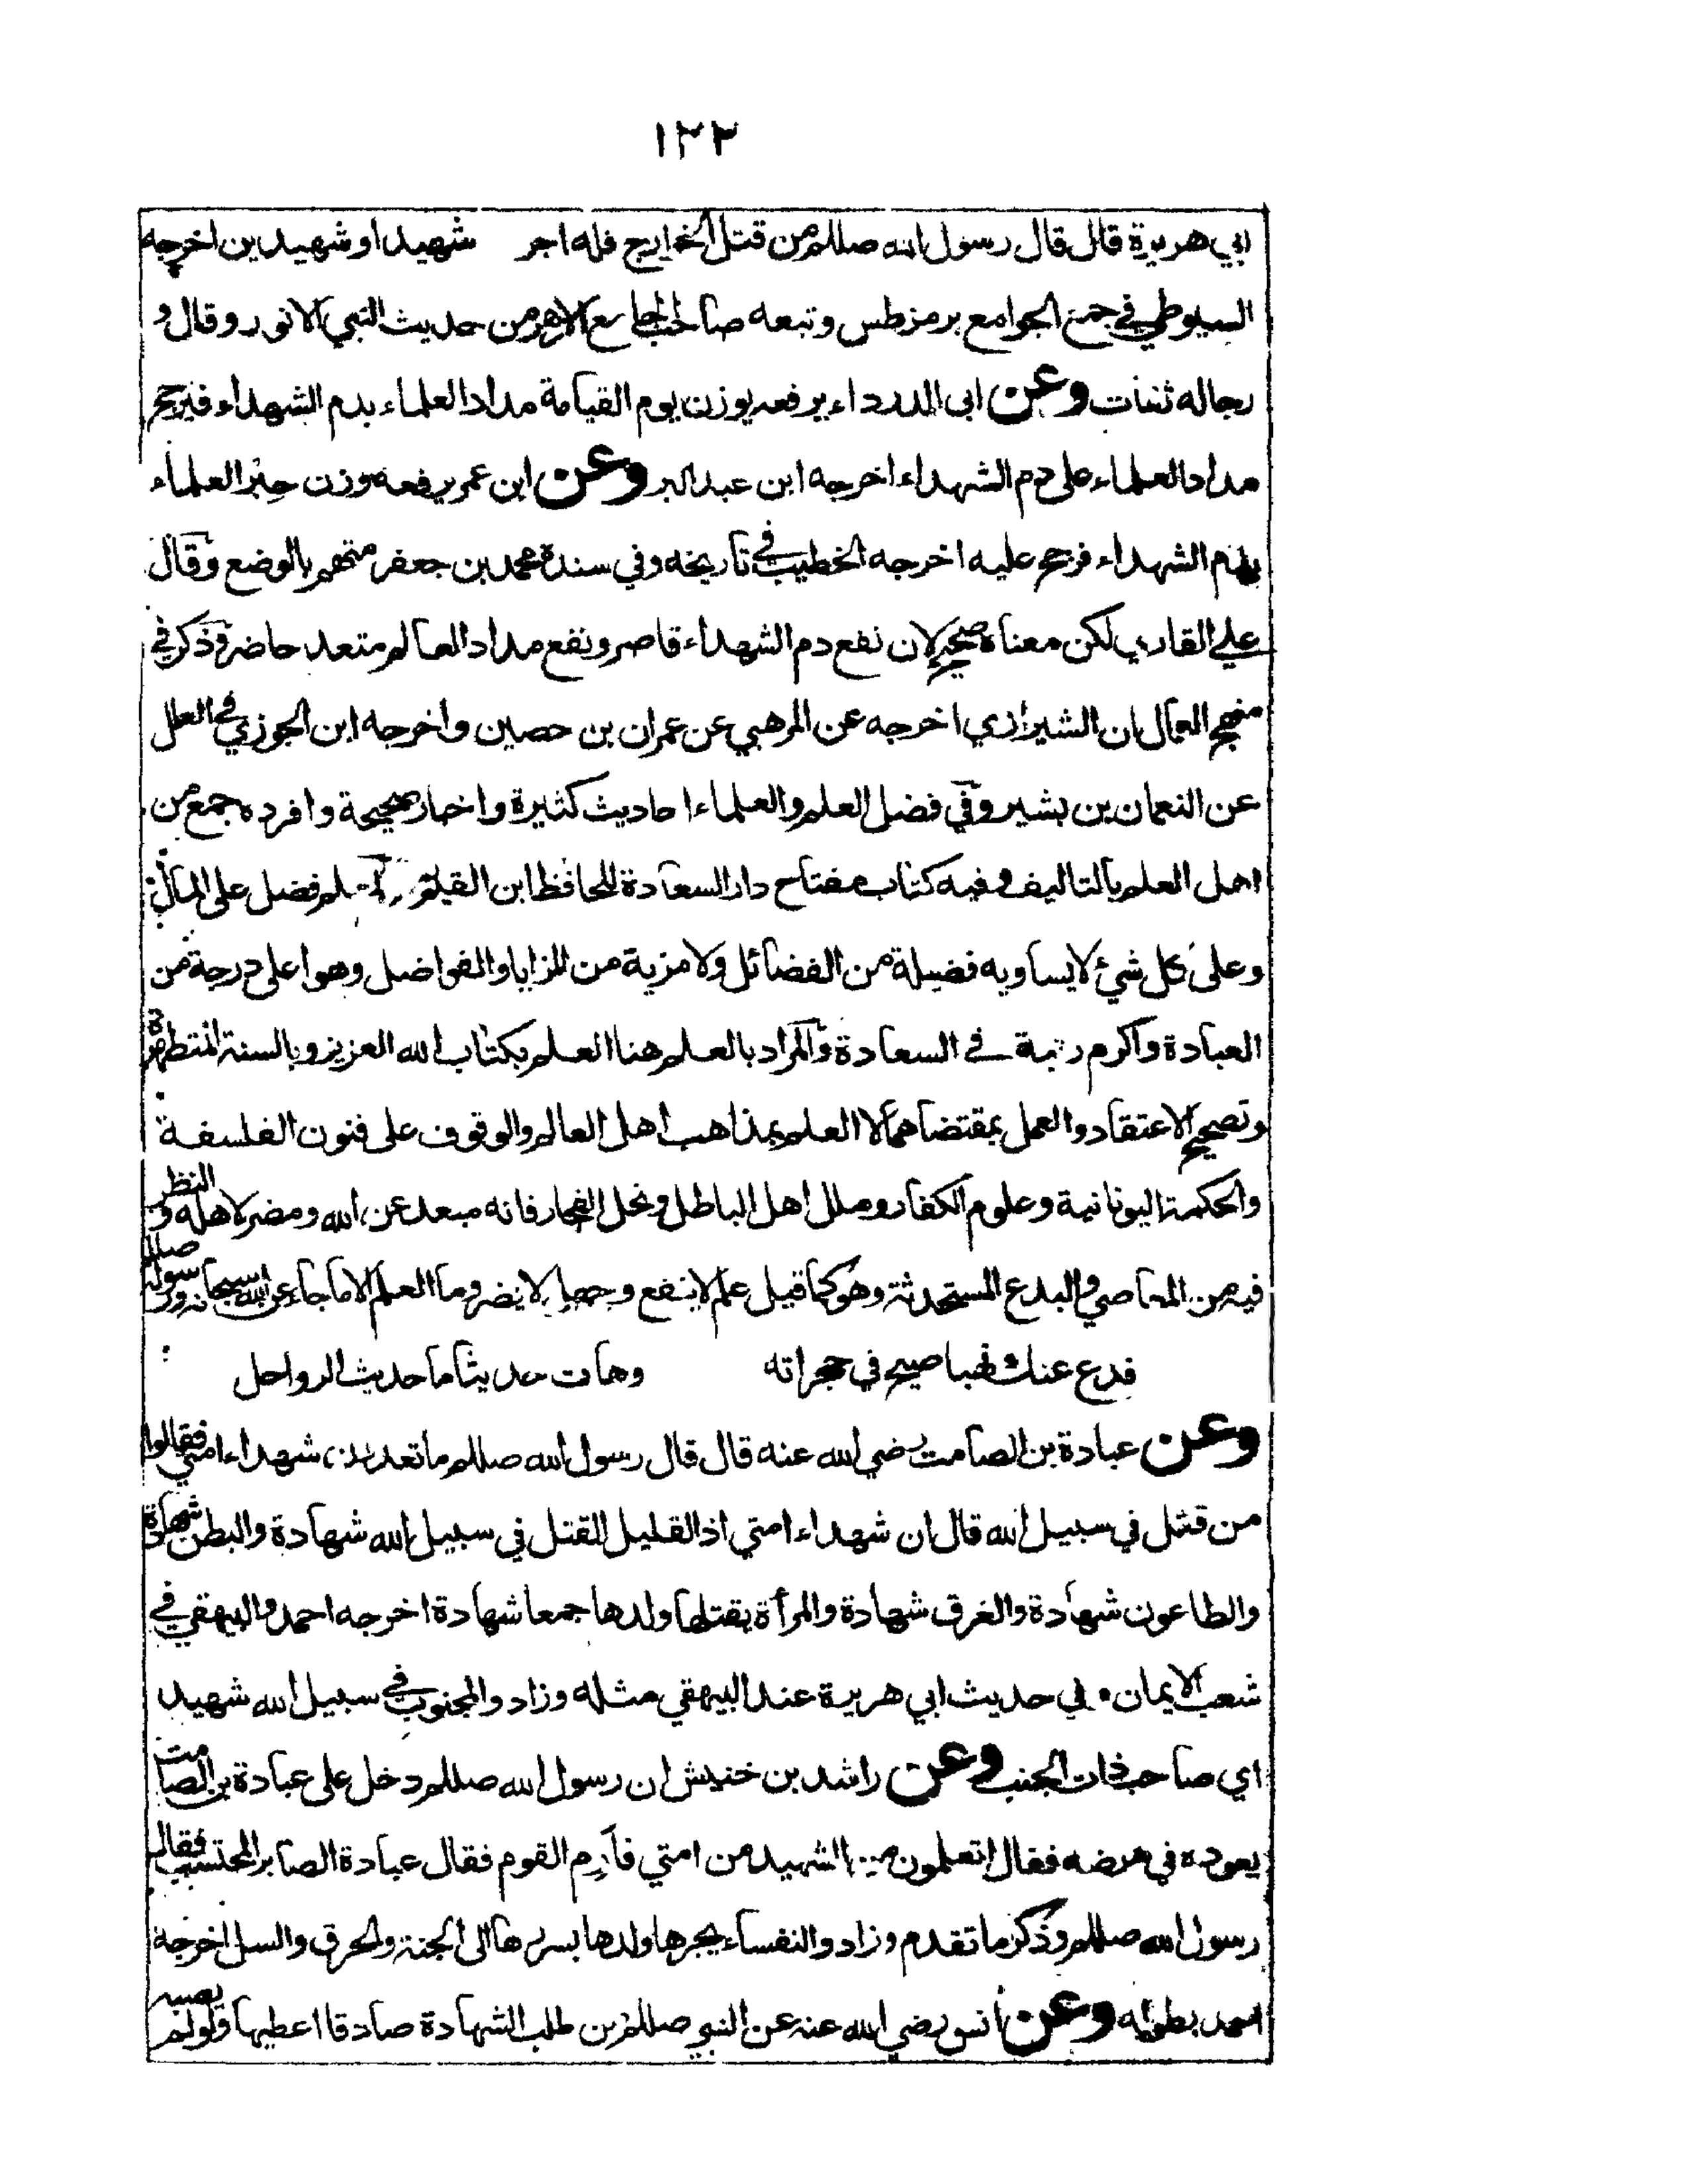 ١٢٢
ابي هريرة قال قال رسول الله صللم من قتل الخوارج فله اجر شهيد او شهيدين اخرجه
السيوطي في جمع الجوامع برمز طس وتبعه صاحب الجامع الازهر من حديث النبي الانور وقال و
رجاله ثقات وعن ابي الدرداء يرفعه يوزن يوم القيامة مداد العلماء بدم الشهداء فيرجح
مداد العلماء على دم الشهداء اخرجه ابن عبد البر وعن ابن عمر يرفعه وزن حبر العلماء
بدم الشهداء فرجح عليه اخرجه الخطيب في تاريخه وفي سنده محمد بن جعفر متهم بالوضع وقال
علي القاري لكن معناه صحيح لان نفع دم الشهداء قاصر ونفع مداد العالم متعد حاضر وذكر في
منهج العمال ان الشيرازي اخرجه عن المرهبي عن عمران بن حصين واخرجه ابن الجوزي في العلل
عن النعمان بن بشير وفي فضل العلم والعلماء احاديث كثيرة واخبار صحيحة وافرده جمع من
اهل العلم بالتاليف وفيه كتاب مفتاح دار السعادة للحافظ ابن القيم فضل على المال
وعلى كل شيء لا يساويه فضيلة من الفضائل ولا مزية من المزايا والفواضل وهو اعلى درجة من
العبادة واكرم رتبة في السعادة والمراد بالعلم هنا العلم بكتاب الله العزيز وبالسنة المتطهرة
وتصحيح الاعتقاد والعمل بمقتضاهما لا العلم بمذاهب اهل العالم والوقوف على فنون الفلسفة
والحكمة اليونانية وعلوم الكفار وملل اهل الباطل ونحل الفجار فانه مبعد عن الله ومضر لاهله والنظر
فيه من المعاصي والبدع المستحدثة وهو كما قيل علم لا ينفع وجهل لا يضر وما العلم الا ما جاء عن الله سبحانه ورسوله صللم
فدع عنك نهبا صيح في حجراته وهات حديثا ما حديث الرواحل
وعن عبادة بن الصامت رضي الله عنه قال قال رسول الله صللم ما تعدون شهداء امتي فقالوا
من قتل في سبيل الله قال ان شهداء امتي اذا لقليل القتل في سبيل الله شهادة والبطن شهادة
والطاعون شهادة والغرق شهادة والمرأة يقتلها ولدها جمعا شهادة اخرجه احمد والبيهقي في
شعب الايمان وفي حديث ابي هريرة عند البيهقي مثله وزاد والمجنوب في سبيل الله شهيد
اي صاحب ذات الجنب وعن راشد بن خنيش ان رسول الله صللم دخل على عبادة بن الصامت
يعوده في مرضه فقال اتعلمون من الشهيد من امتي فأرم القوم فقال عبادة الصابر المحتسب فقال
رسول الله صللم وذكر ما تقدم وزاد والنفساء يجرها ولدها بسررها الى الجنة والحرق والسل اخرجه
احمد بطوله وعن انس رضي الله عنه عن النبي صللم من طلب الشهادة صادقا اعطيها ولو لم تصبه